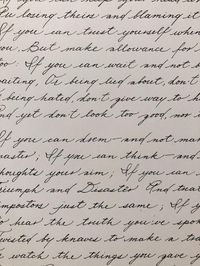 re losing theirs and blaming it
f you can trust yourself when
ou, But make allowance for
too: If you can wait and not b
waiting, Or being lied about, don't
being hated, don't give way to h
nd yet don't look too good, nor
f you can dream - and not ma
master; If you can think - and
houghts your aim; If you can
riumph and Disaster And trea
mpostors just the same; If y
o hear the truth you've spo
wisted by knaves to make a tra
watch the things you gave y